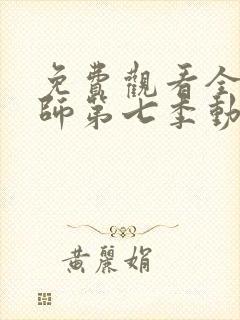 免費觀看全
師第七季動
黃麗娟